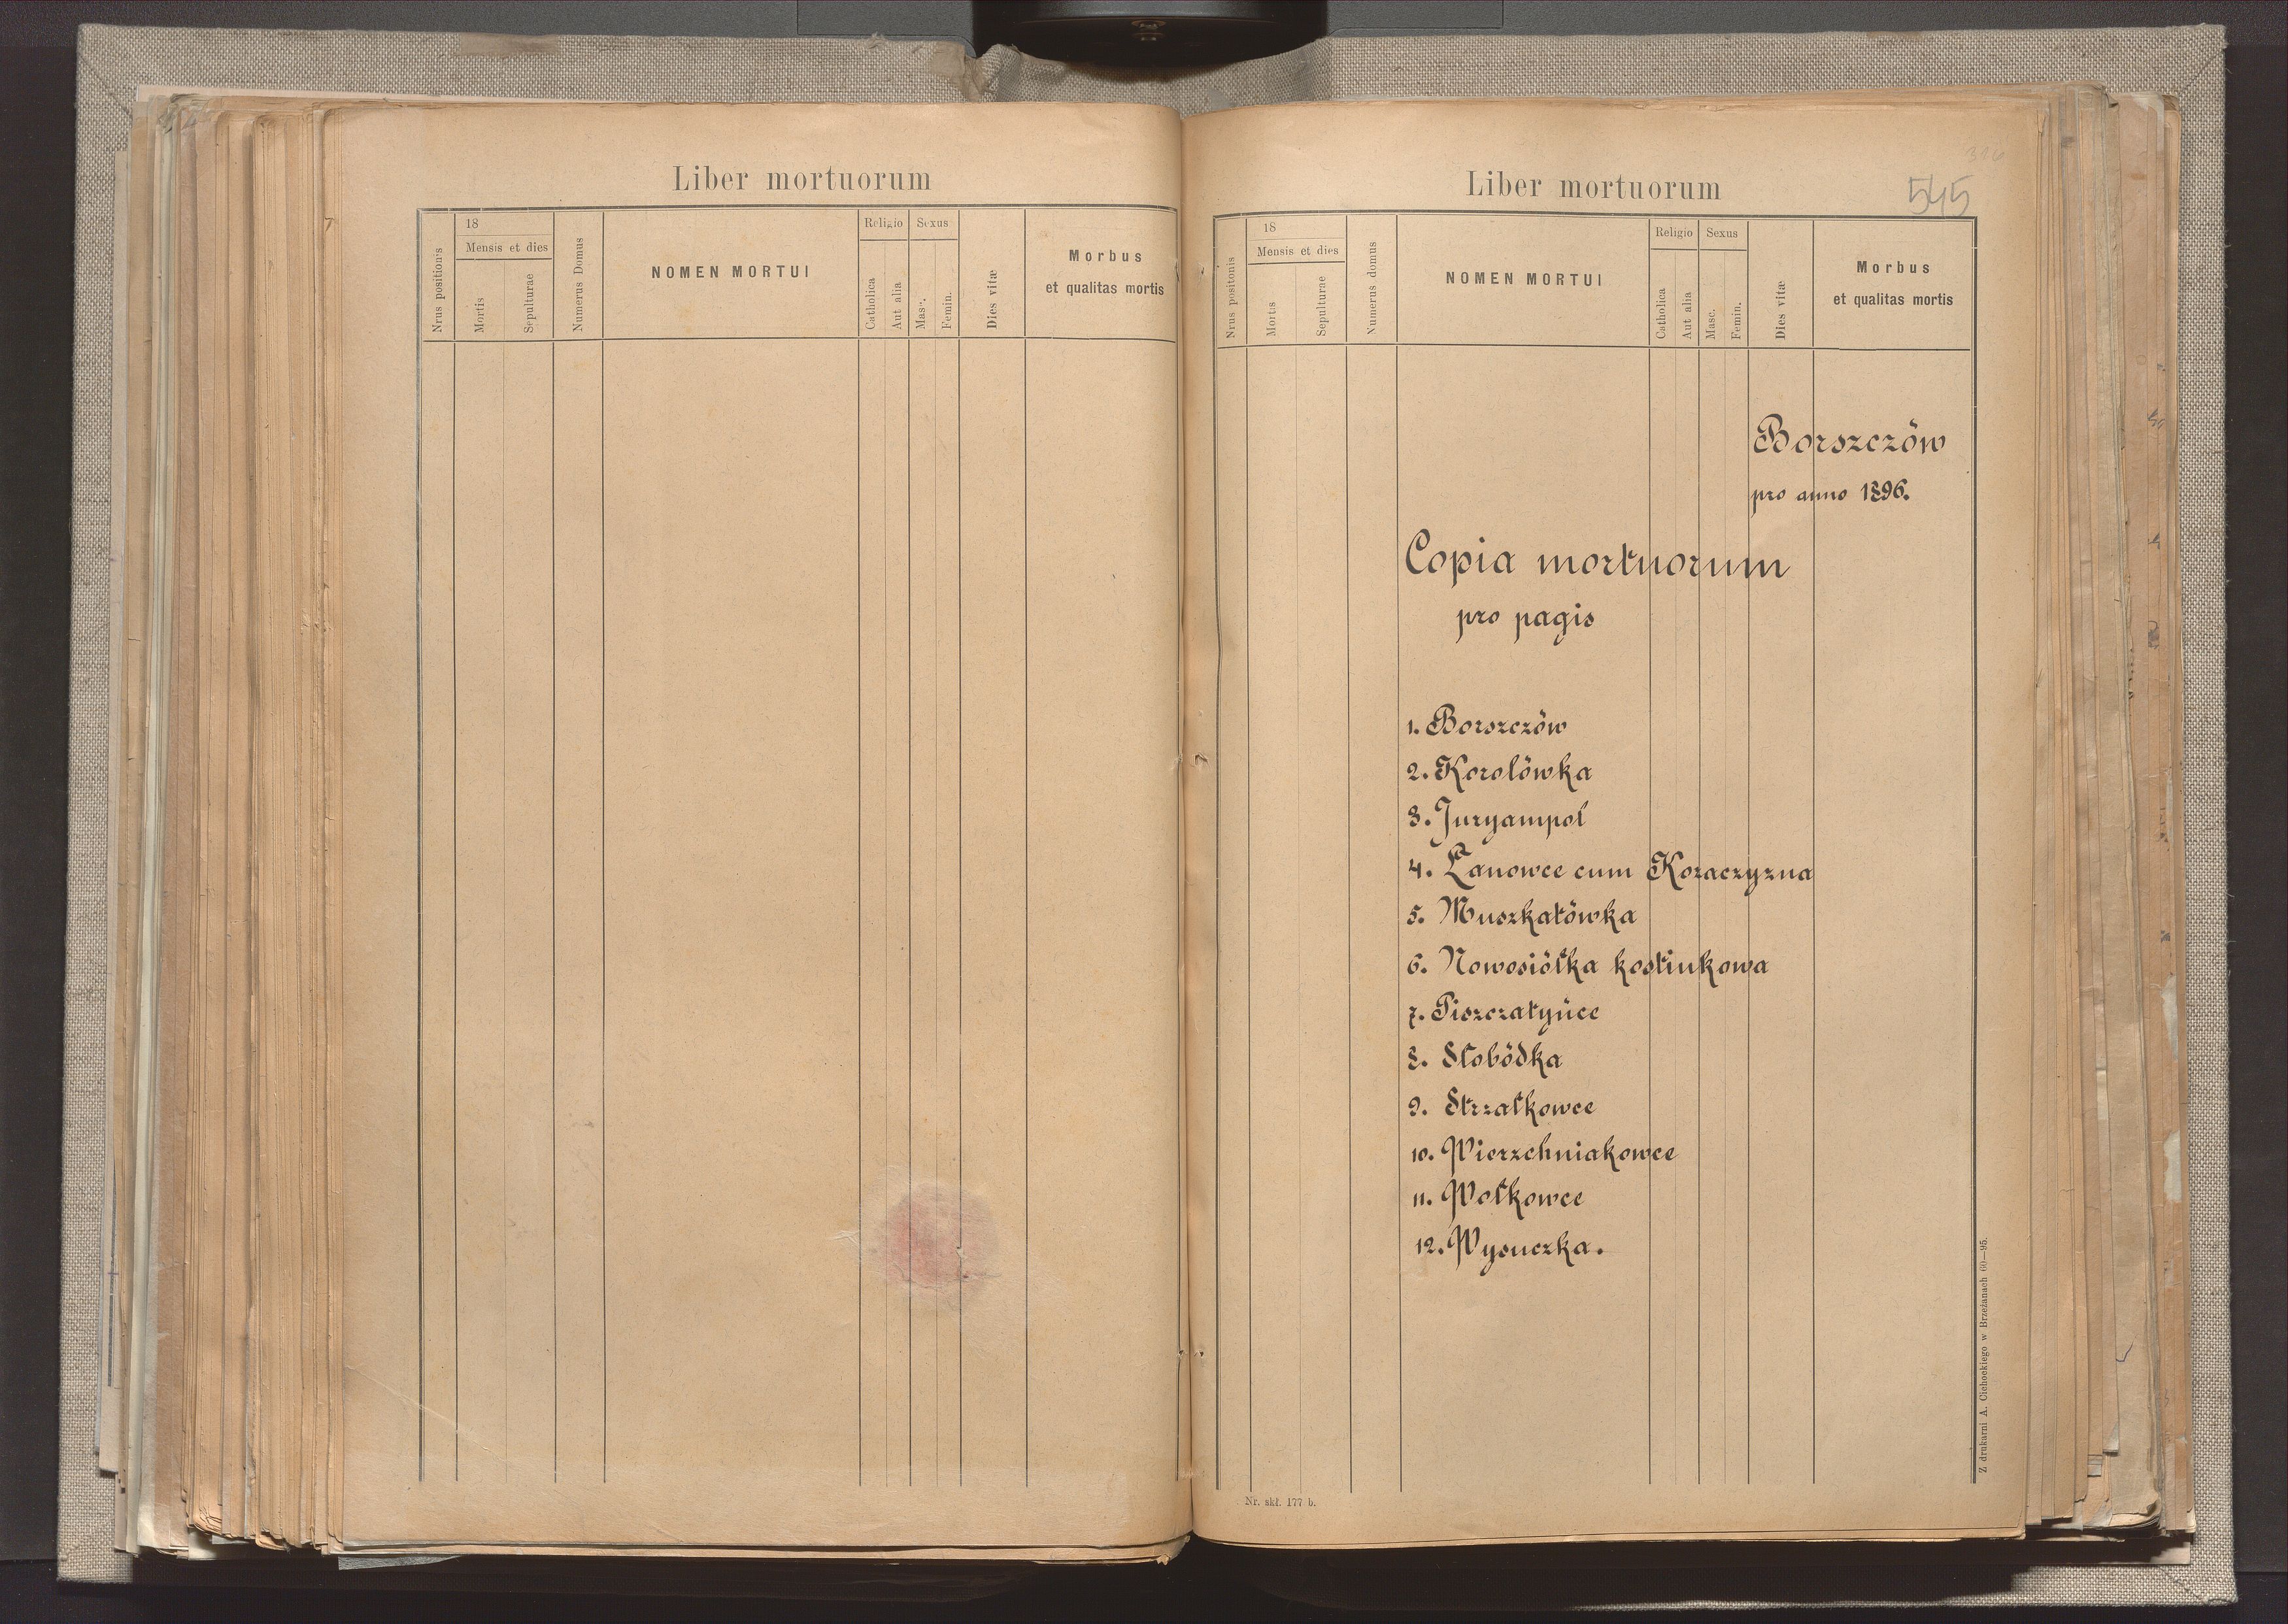 Liber mortuorum
Nrus positionis
18
Mensis et dies
Mortis
Sepulturae
Numerus Domus
NOMEN MORTUI
Religio
Catholica
Aut alia
Sexus
Masc.
Femin.
Dies vitæ
Morbus
et qualitas mortis
Liber mortuorum
545
Nrus positonis
18
Mensis et dies
Mortis
Sepulturae
Numerus domus
NOMEN MORTUI
Religio
Catholica
Aut alia
Sexus
Masc.
Femin.
Dies vitæ
Morbus
et qualitas mortis
Borszczów
pro anno 1896.
Copia mortuorum
pro pagis
1. Borszczów
2. Korolówka
3. Juryampol
4. Łanowce cum Kozaczyzna
5. Muszkatówka
6. Nowosiółka kostiukowa
7. Piszczatyńce
8. Słobódka
9. Strzałkowce
10. Wierzchniakowce
11. Wołkowce
12. Wysuczka.
Nr. skł. 177 b.
Z drukarni A. Cichockiego w Brzeżanach 60—95.